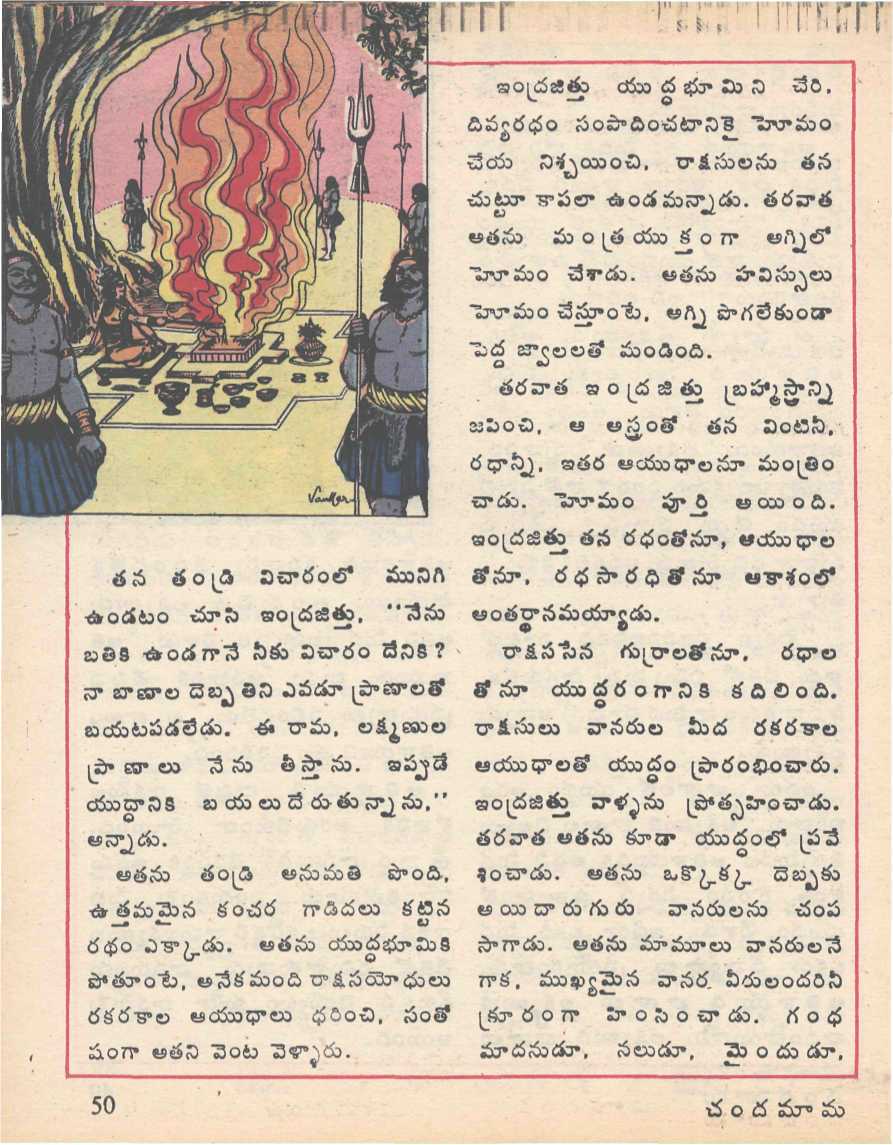 తన తండ్రి విచారంలో మునిగి
ఉండటం చూసి ఇంద్రజిత్తు, "నేను
బతికి ఉండగానే నీకు విచారం దేనికి?
నా బాణాల దెబ్బతిని ఎవడూ ప్రాణాలతో
బయటపడలేడు. ఈ రామ, లక్ష్మణుల
ప్రాణాలు నేను తీస్తాను. ఇప్పుడే
యుద్ధానికి బయలుదేరుతున్నాను,"
అన్నాడు.
అతను తండ్రి అనుమతి పొంది,
ఉత్తమమైన కంచర గాడిదలు కట్టిన
రథం ఎక్కాడు. అతను యుద్ధభూమికి
పోతూంటే, అనేకమంది రాక్షసయోధులు
రకరకాల ఆయుధాలు ధరించి, సంతో
షంగా అతని వెంట వెళ్ళారు.
ఇంద్రజిత్తు యుద్ధభూమిని చేరి,
దివ్యరధం సంపాదించటానికై హెూమం
చేయ నిశ్చయించి, రాక్షసులను తన
చుట్టూ కాపలా ఉండమన్నాడు. తరవాత
అతను మంత్రయుక్తంగా అగ్నిలో
హెూమం చేశాడు. అతను హవిస్సులు
హెూమం చేస్తూంటే, అగ్ని పొగలేకుండా
పెద్ద జ్వాలలతో మండింది.
తరవాత ఇంద్రజిత్తు బ్రహ్మాస్త్రాన్ని
జపించి, ఆ అస్త్రంతో తన వింటినీ,
రధాన్నీ, ఇతర ఆయుధాలనూ మంత్రిం
చాడు. హెూమం పూర్తి అయింది.
ఇంద్రజిత్తు తన రధంతోనూ, ఆయుధాల
తోనూ, రధసారధితోనూ ఆకాశంలో
అంతర్ధానమయ్యాడు.
రాక్షససేన గుర్రాలతోనూ, రధాల
తోనూ యుద్ధరంగానికి కదిలింది.
రాక్షసులు వానరుల మీద రకరకాల
ఆయుధాలతో యుద్ధం ప్రారంభించారు.
ఇంద్రజిత్తు వాళ్ళను ప్రోత్సహించాడు.
తరవాత అతను కూడా యుద్ధంలో ప్రవే
శించాడు. అతను ఒక్కొక్క దెబ్బకు
అయిదారుగురు వానరులను చంప
సాగాడు. అతను మామూలు వానరులనే
గాక, ముఖ్యమైన వానర వీరులందరినీ
క్రూరంగా హింసించాడు. గంధ
మాదనుడూ, నలుడూ, మైందుడూ,
50
చందమామ